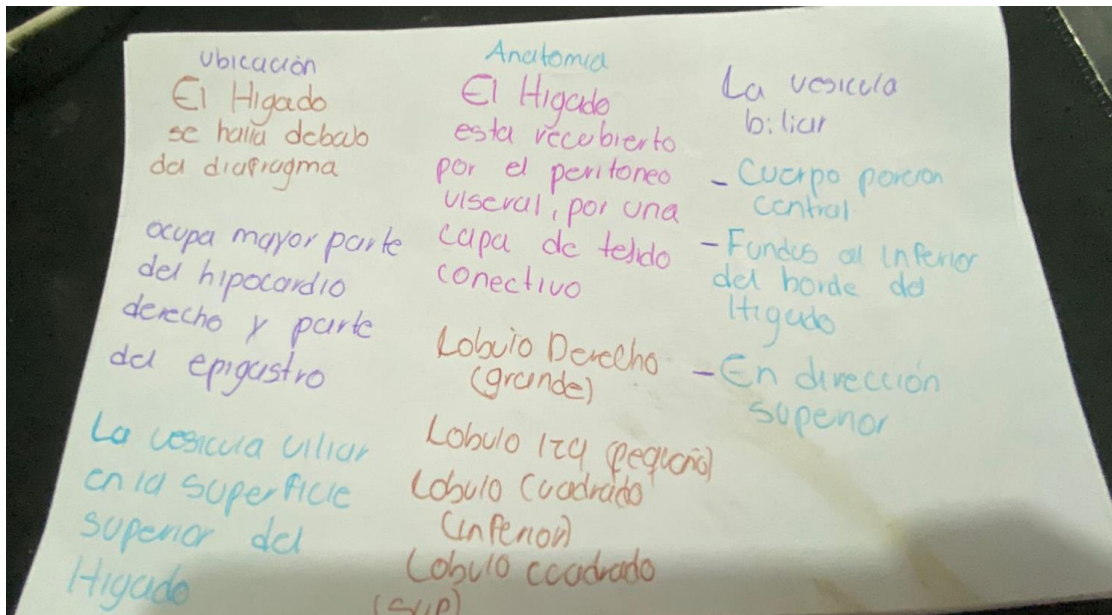 Ubicación
El Higado
se halla debajo
del diafragma
ocupa mayor parte
del hipocardio
derecho y parte
del epigastro
La vesicula viliar
en la superficie
superior del
Higado
Anatomia
El Higado
esta recubierto
por el peritoneo
viseral, por una
capa de tejido
conectivo
Lobulo Derecho
(grande)
Lobulo Izq (pequeño)
Lobulo Cuadrado
(inferior)
Lobulo ccadrado
(sup)
La vesicula
biliar
- Cuerpo porcion
central
- Fundus al inferior
del borde del
Higado
- En dirección
superior